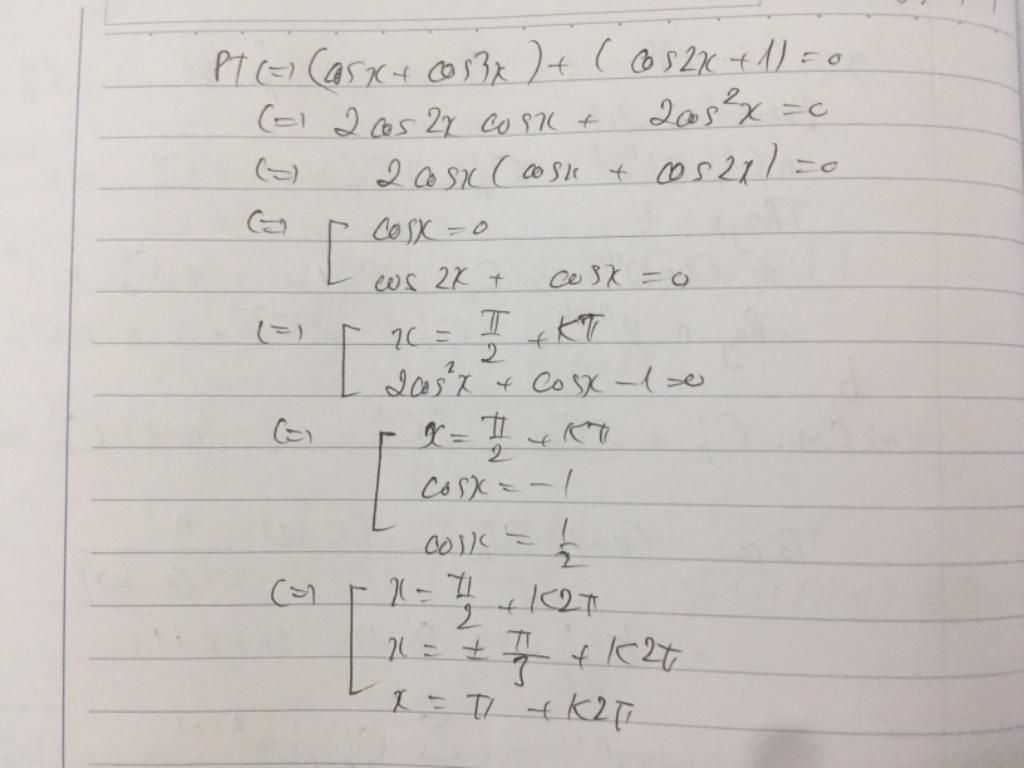 PT (=) (cosx + cos3x) + (cos2x + 1) = 0
(=) 2cos2x cosx + 2cos²x = 0
(=) 2cosx(cosx + cos2x) = 0
(=) [ cosx = 0
cos2x + cosx = 0
(=) [ x = π/2 + kπ
2cos²x + cosx - 1 = 0
(=) [ x = π/2 + kπ
cosx = -1
cosx = 1/2
(=) [ x = π/2 + k2π
x = ± π/3 + k2π
x = π + k2π